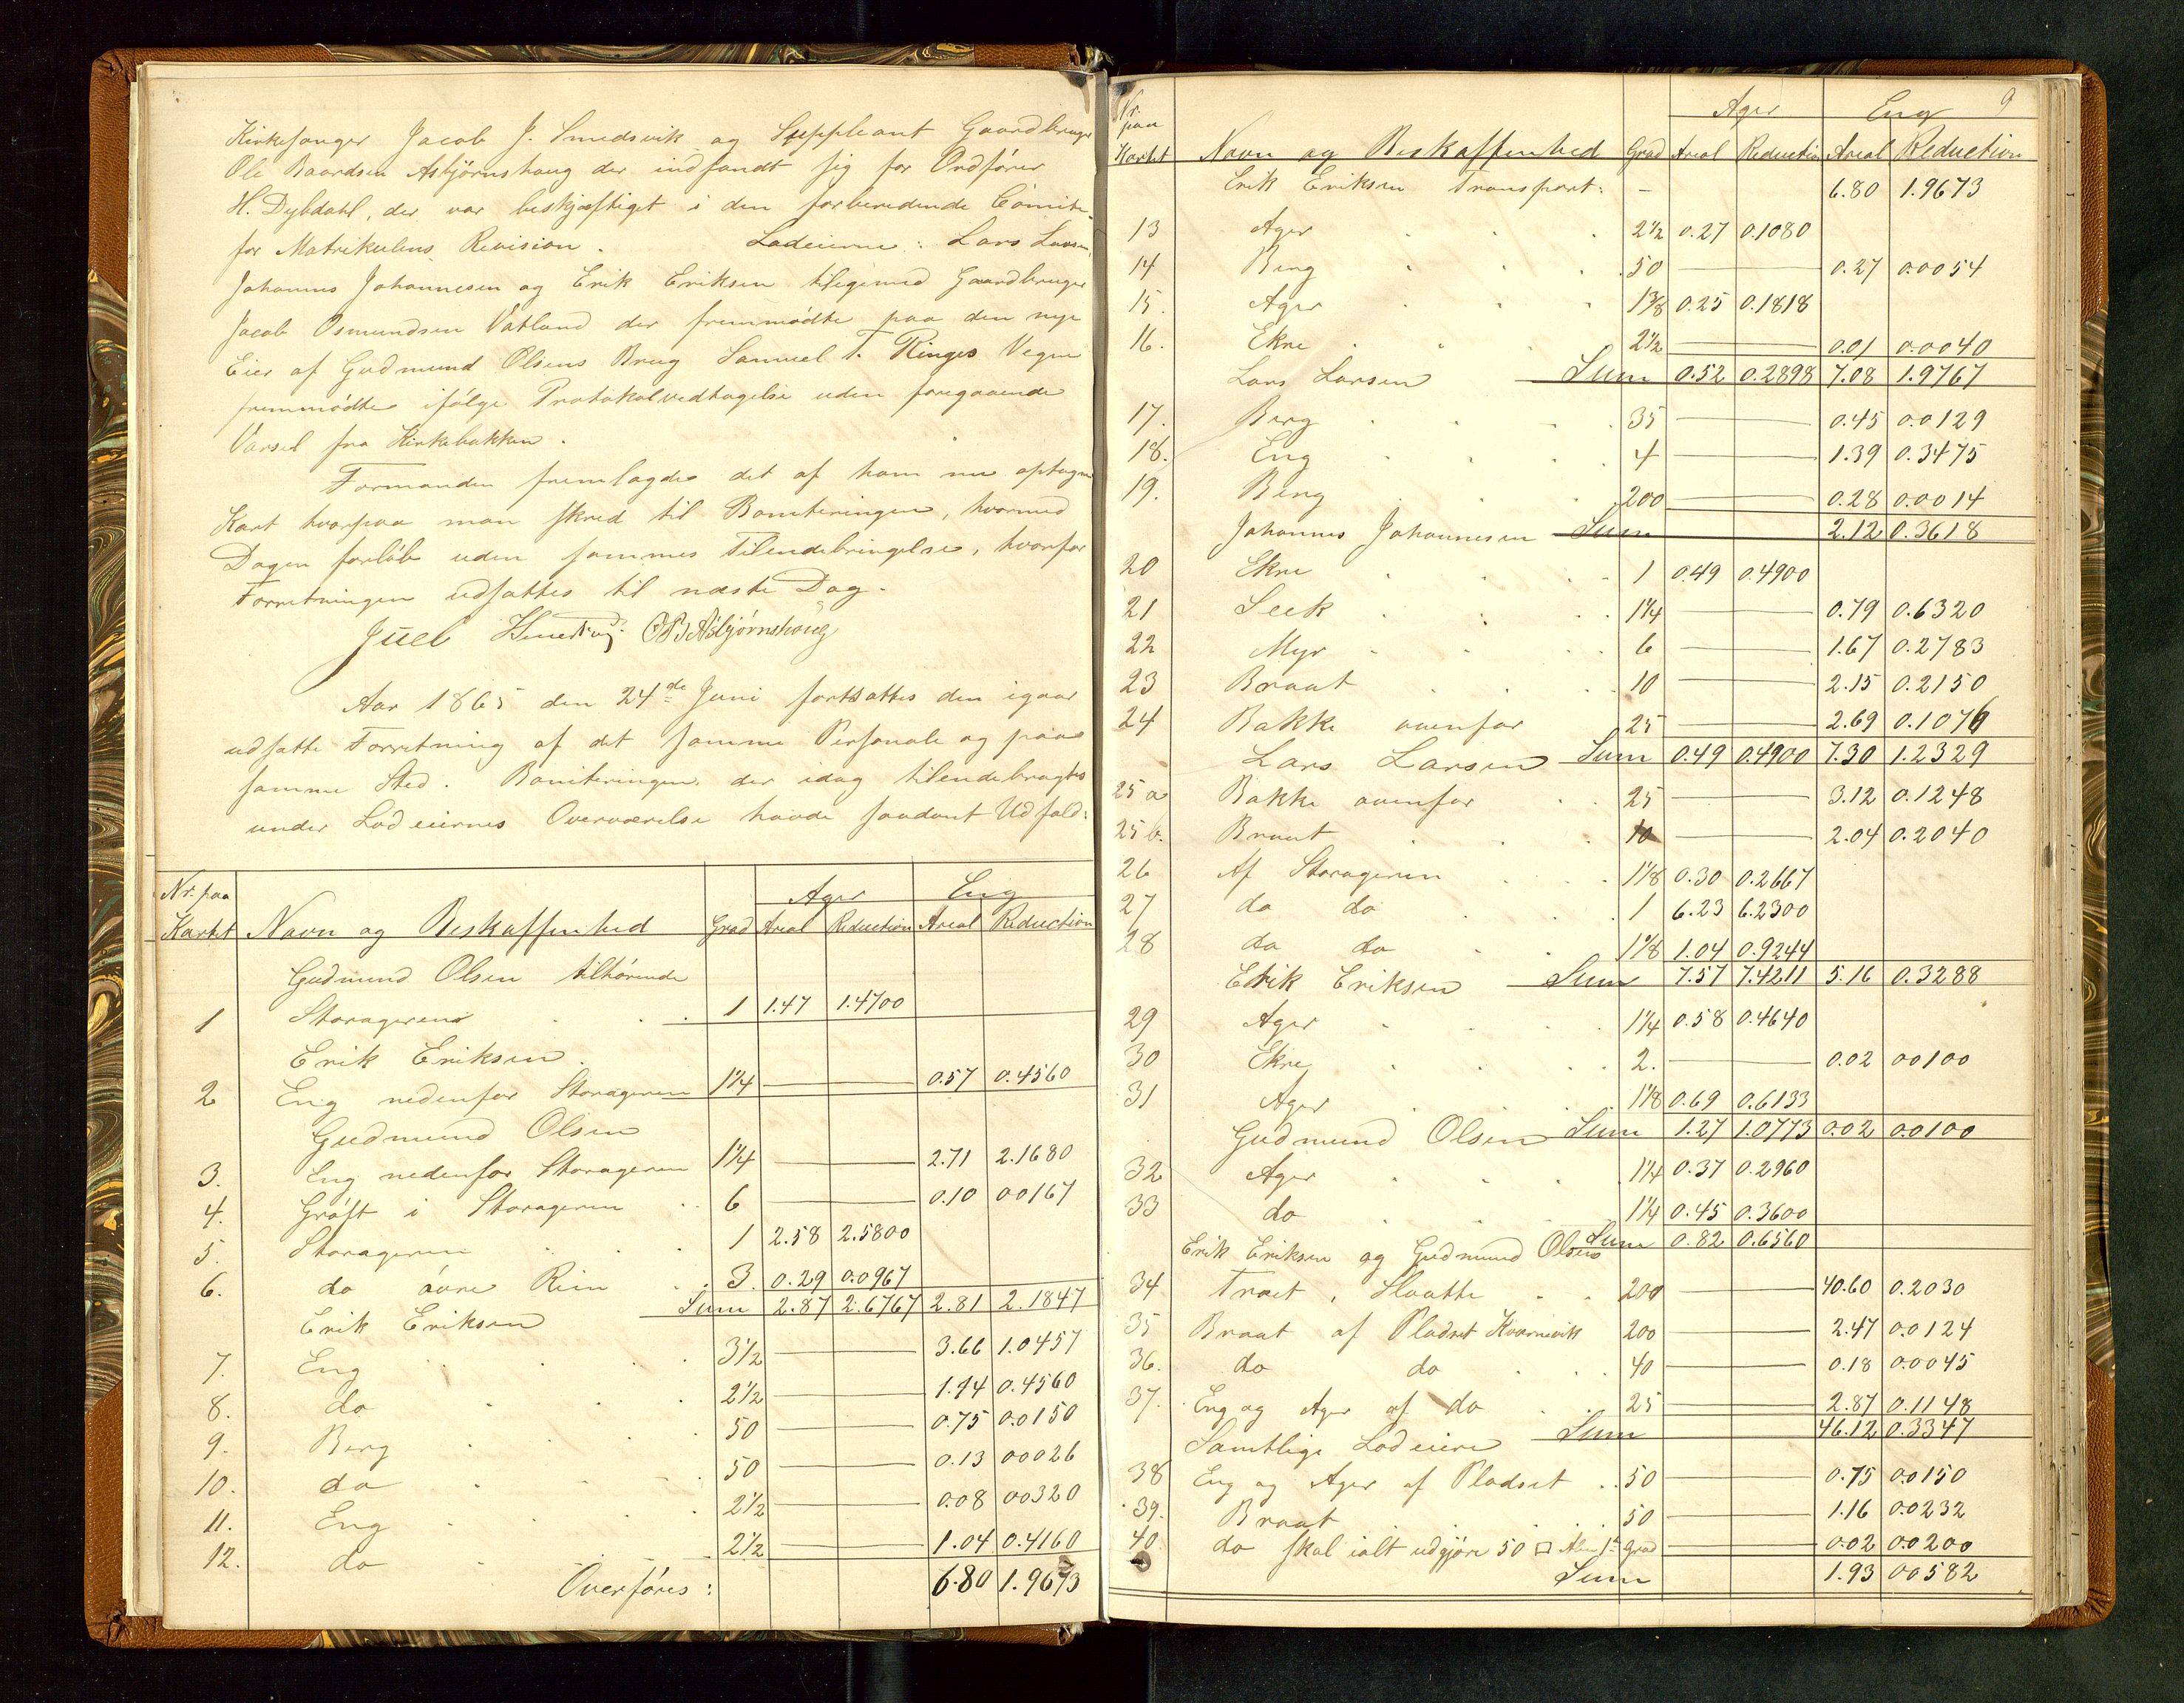 Kirkesanger Jacob J. Smedsvik og Suppleant Gaardbruger
Ole Baardsen Asbjørnshaug der indfandt sig for Ordfører
H. Dybdahl, der var beskjæftiget i den forberedende Comite
for Matrikulens Revision. Lodeierne: Lars Larsen,
Johannes Johannesen og Erik Eriksen tilligemed Gaardbruger
Jacob Osmundsen Vatland der fremmødte paa den nye
Eier af Gudmund Olsens Brug Samuel T. Ringes Vegne
fremmødte ifølge Protokolvedtagelse uden foregaaende
Varsel fra Kirkebakken.
Formanden fremlagde det af ham nu optagne
Kart hvorpaa man skred til Boniteringen, hvormed
Dagen forløb uden sammes Tilendebringelse, hvorfor
Forretningen udsattes til næste Dag.
Juel OBAsbjørnshoug
Aar 1865 den 24de Juni fortsattes den igaar
udsatte Forretning af det samme Personale og paa
samme Sted. Boniteringen der idag tilendebragtes
under Lodeiernes Overværelse havde saadant Udfald:
Nr. paa Kartet Navn og Beskaffenhed Grad Ager Areal Reduction Eng Areal Reduction
Gudmund Olsen tilhørende
1 Storageren 1 1.47 1.4700
Erik Eriksen
2 Eng nedenfor Storageren 1 1/4 0.57 0.4560
Gudmund Olsen
3. Eng nedenfor Storageren 1 1/4 2.71 2.1680
4. Grøft i Storageren 6 0.10 00167
5. Storageren 1 2.58 2.5800
6. do øvre Rim 3. 0.29 0.0967
Erik Eriksen Sum 2.87 2.6767 2.81 2.1847
7. Eng 3 1/2 3.66 1.0457
8. do 2 1/2 1.14 0.4560
9. Berg 50 0.75 0.0150
10. do 50 0.13 00026
11. Eng 2 1/2 0.08 00320
12. do 2 1/2 1.04 0.4160
Overføres: 6.80 1.9673
9
Nr. paa Kartet Navn og Beskaffenhed Grad Ager Areal Reduction Eng Areal Reduction
Erik Eriksen Transport: - 6.80 1.9673
13 Ager 2 1/2 0.27 0.1080
14 Berg 50 0.27 0.0054
15. Ager 1 3/8 0.25 0.1818
16. Ekre 2 1/2 0.01 0.0040
Lars Larsen Sum 0.52 0.2898 7.08 1.9767
17. Berg 35 0.45 0.0129
18. Eng 4 1.39 0.3475
19. Berg 200 0.28 0.0014
Johannes Johannesen Sum 2.12 0.3618
20 Ekre 1 0.49 0.4900
21 Leek 1 1/4 0.79 0.6320
22 Myr 6 1.67 0.2783
23 Braat 10 2.15 0.2150
24 Bakke ovenfor 25 2.69 0.1076
Lars Larsen Sum 0.49 0.4900 7.30 1.2329
25 a Bakke ovenfor 25 3.12 0.1248
25 b. Braat 10 2.04 0.2040
26 Af Storageren 1 1/8 0.30 0.2667
27 do do 1 6.23 6.2300
28 do do 1 1/8 1.04 0.9244
Erik Eriksen Sum 7.57 7.4211 5.16 0.3288
29 Ager 1 1/4 0.58 0.4640
30 Ekre 2. 0.02 00100
31 Ager 1 1/8 0.69 0.6133
Gudmund Olsen Sum 1.27 1.0773 0.02 0.0100
32 Ager 1 1/4 0.37 0.2960
33 do 1 1/4 0.45 0.3600
Erik Eriksen og Gudmund Olsen Sum 0.82 0.6560
34 Træt, Slaatte 200 40.60 0.2030
35 Braat af Pladset Kvarnevik 200 2.47 0.0124
36. do do 40 0.18 0.0045
37. Eng og Ager af do 25 2.87 0.1148
Samtlige Lodeiere Sum 46.12 0.3347
38 Eng og Ager af Pladset 50 0.75 0.0150
39. Braat 50 1.16 0.0232
40. do skal ialt udgjøre 50 □ Alen 1ste Grad 0.02 0.0200
Sum 1.93 00582